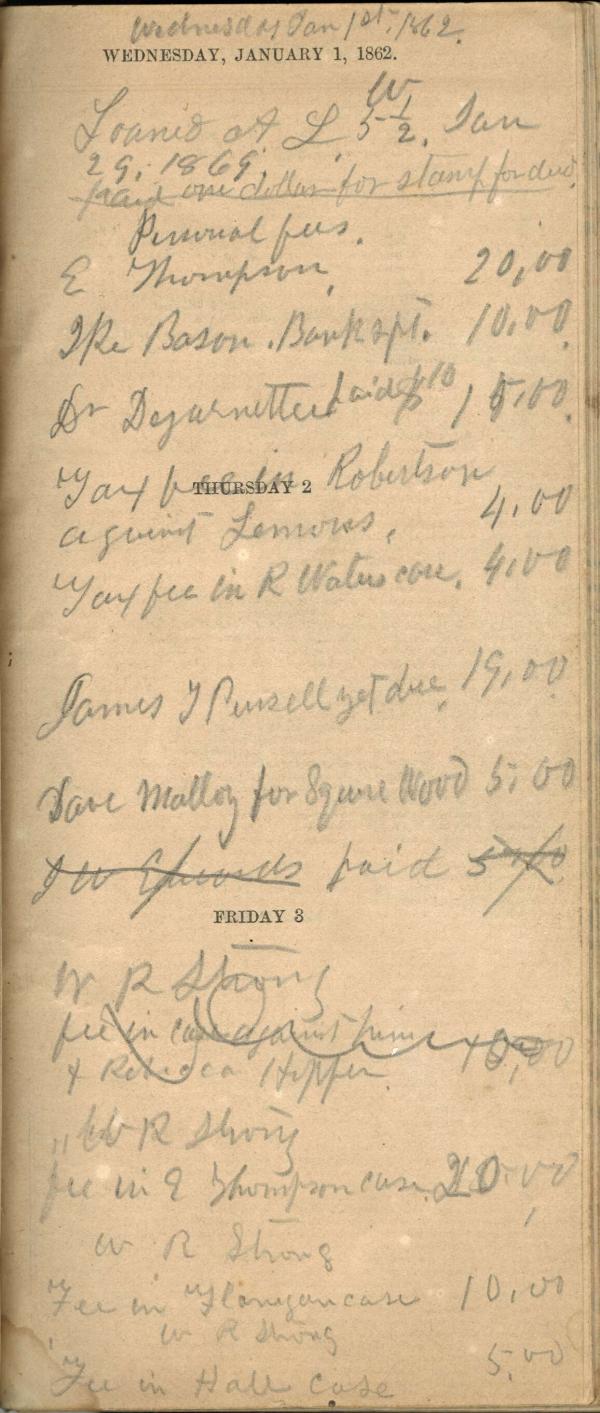 Wednesday Jan 1st. 1862.
WEDNESDAY, JANUARY 1, 1862.
W
Loaned at L 5 1/2. Jan
29, 1869,
paid one dollar for stamp for deed.
Personal fees.
E Thompson, 20,00
Ike Bason. Bankrpt. 10.00
Dr Dejarnette paid $10 15,00.
Tax fee in Robertson
THURSDAY 2
against Lemons, 4,00
Tax fee in R Waters case. 4,00
James T Pursell yet due, 19,00
Dave Malloy for Squire Wood 5,00
J W Edwards paid 5,00
FRIDAY 3
W R Strong
fee in case against him
& Rebecca Hopper 10,00
" W R Strong
fee in E Thompson case 20.00
W R Strong
Fee in Flanigan case 10,00
W R Strong
Fee in Hall case 5,00